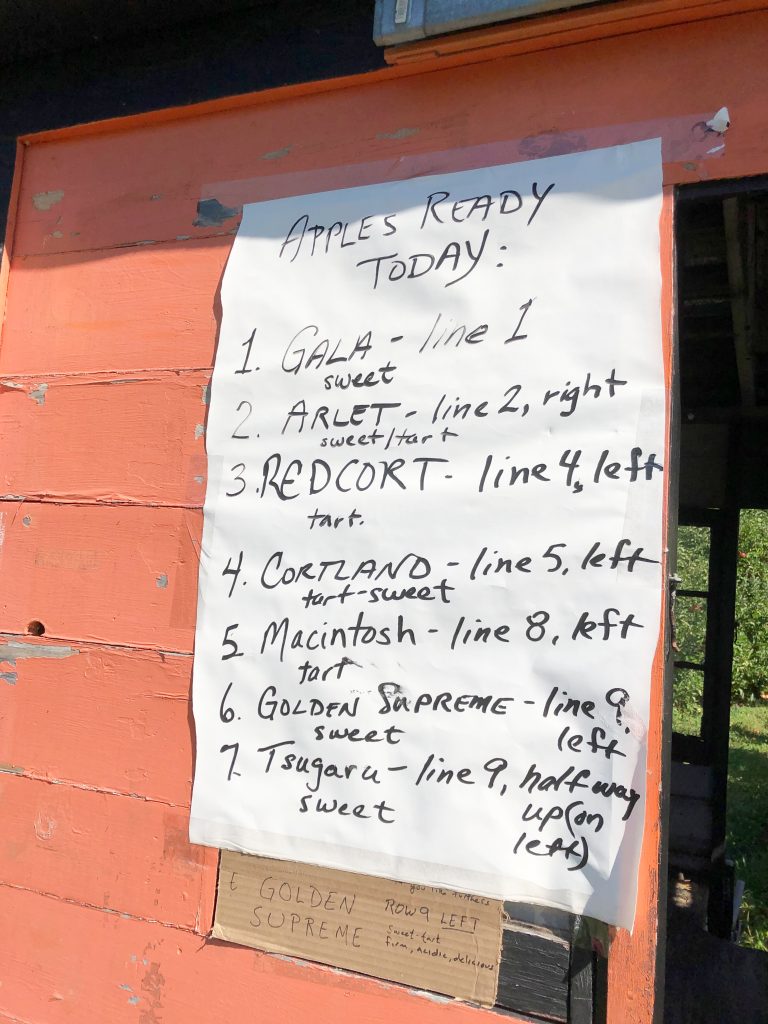 APPLES READY
TODAY:
1. GALA - line 1
sweet
2. ARLET - line 2, right
sweet/tart
3. REDCORT - line 4, left
tart.
4. CORTLAND - line 5, left
tart-sweet
5. Macintosh - line 8, left
tart
6. GOLDEN SUPREME - line 9,
sweet left
7. Tsugaru - line 9, halfway
sweet up (on
left)
you like
E GOLDEN ROW 9 LEFT
SUPREME Sweet-tart
firm, acidic, delicious